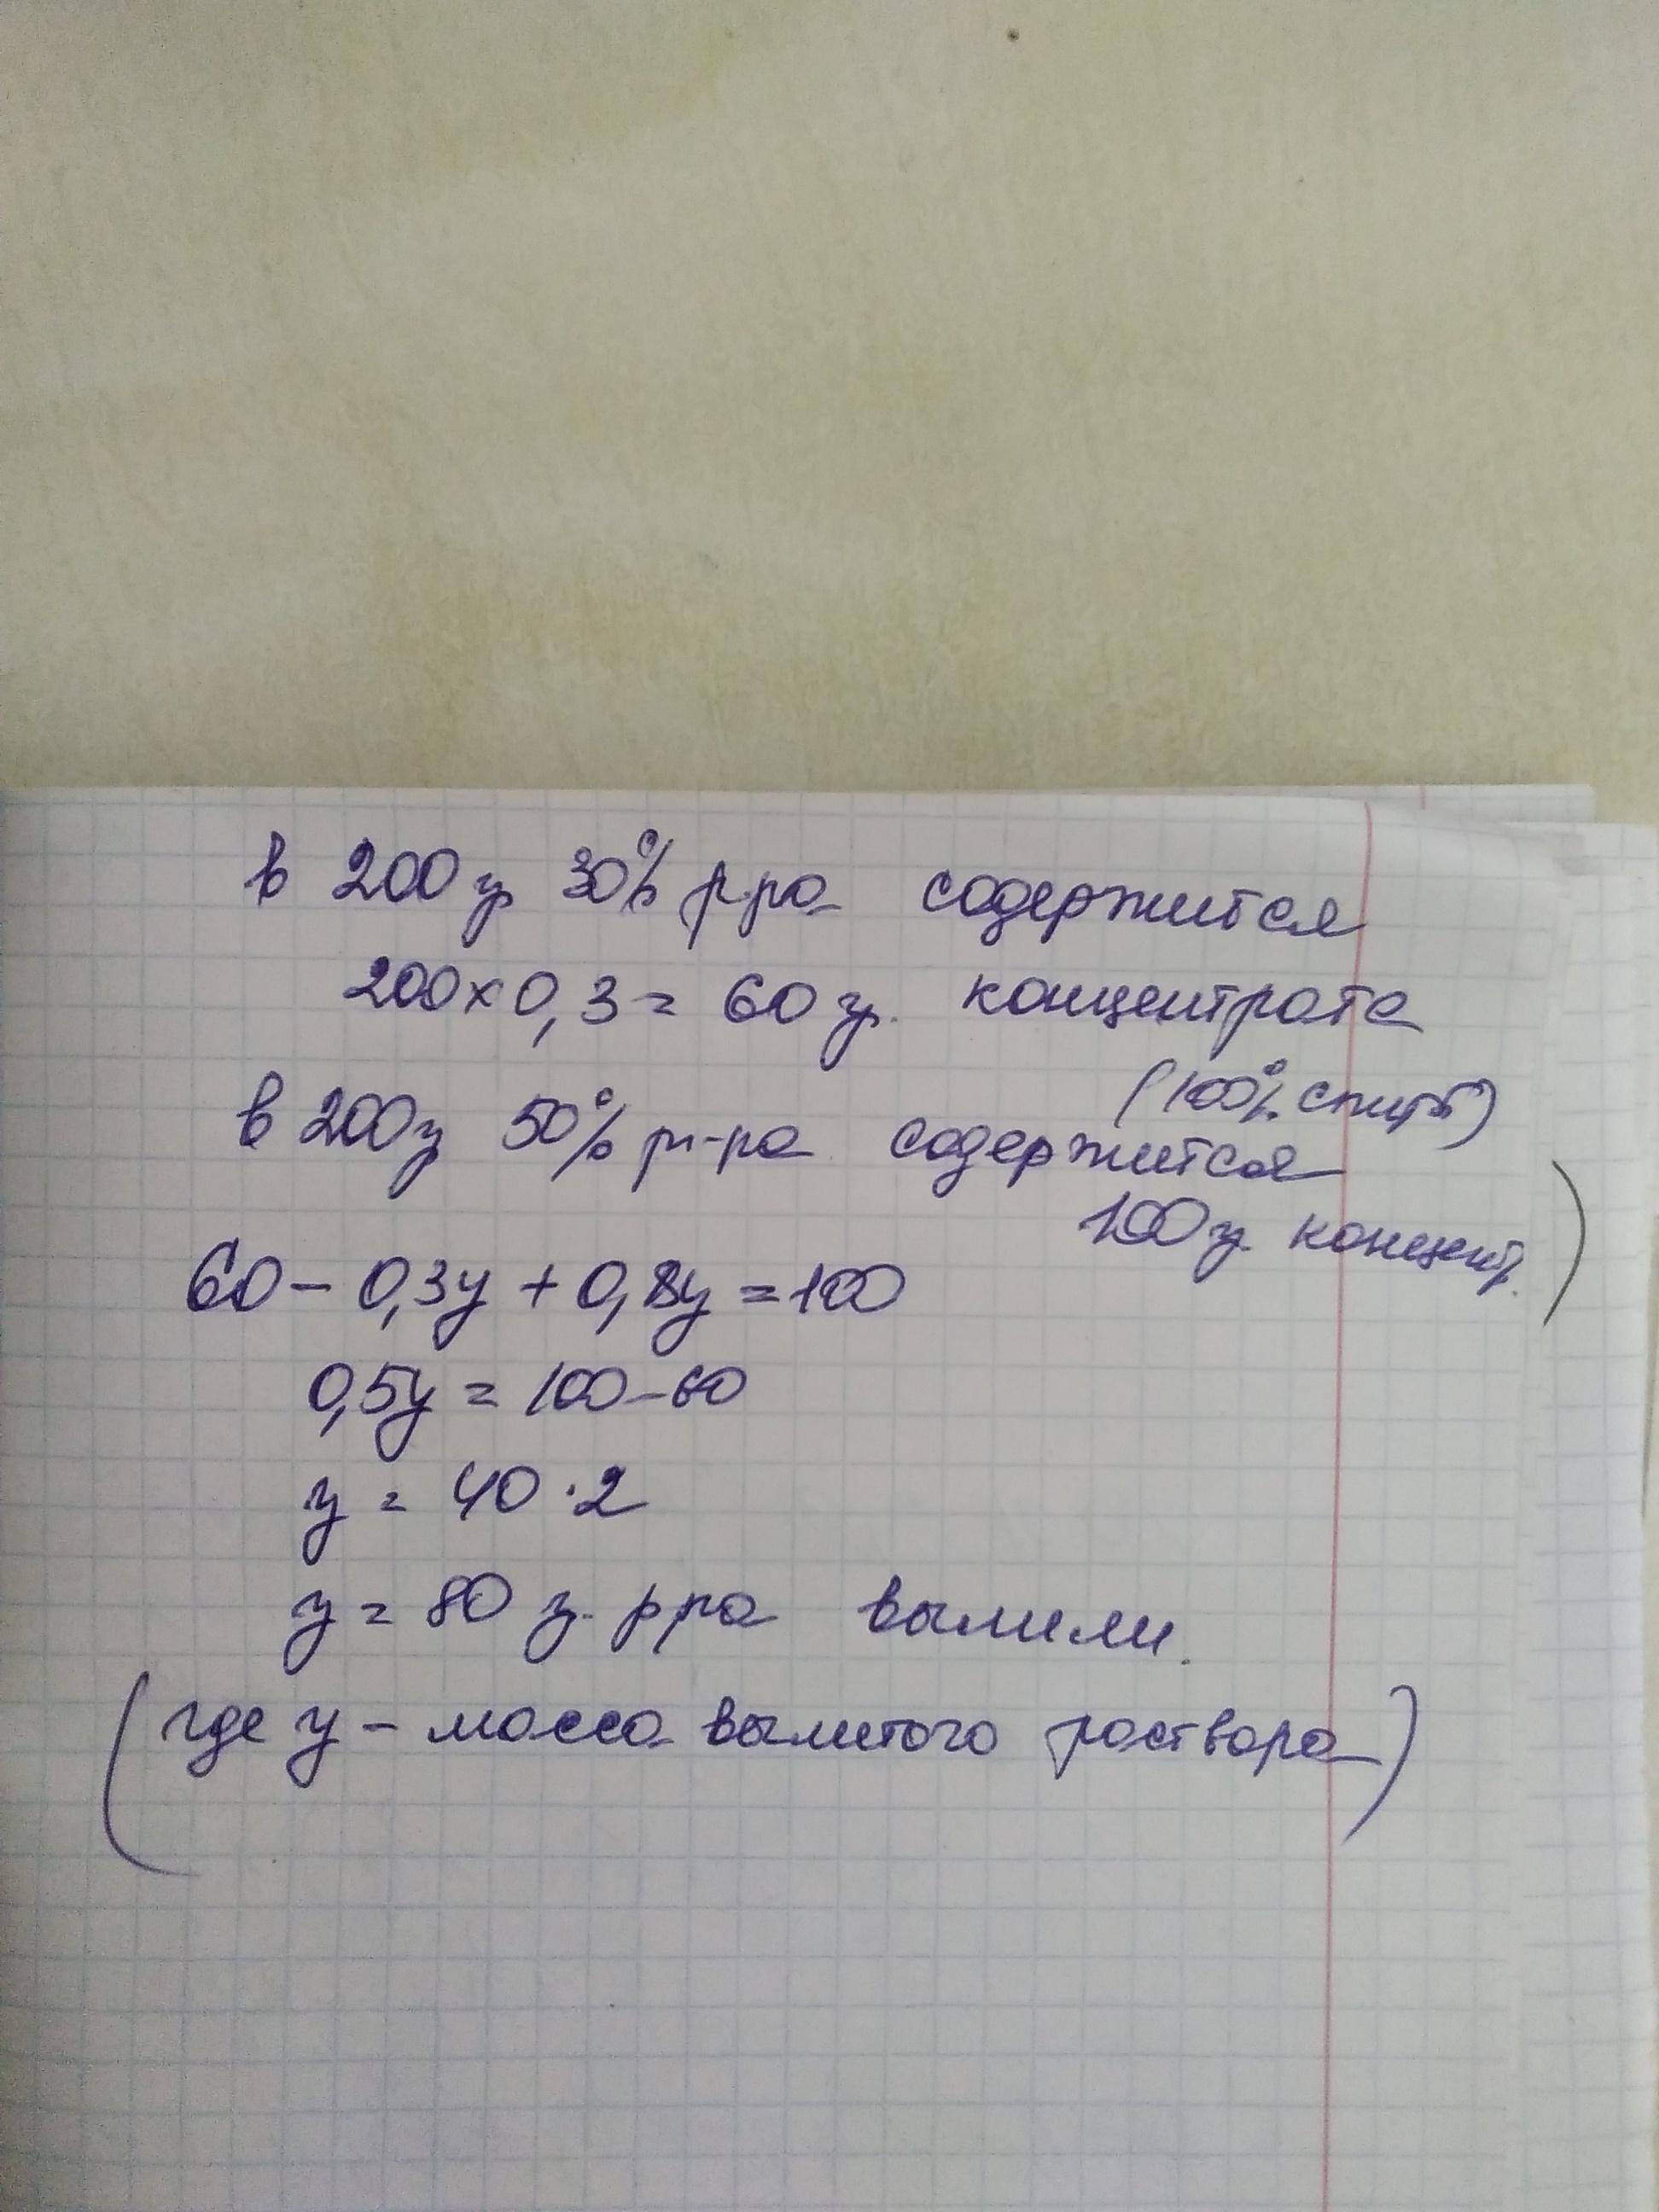 в 200 г 30% р-ра содержится
200×0,3 = 60 г. концентрата
(100% спирт)
в 200 г 50% р-ра содержится
100 г. концент.)
60 - 0,3у + 0,8у = 100
0,5у = 100-60
у = 40 · 2
у = 80 г. р-ра вылили.
(где у - масса вылитого раствора)